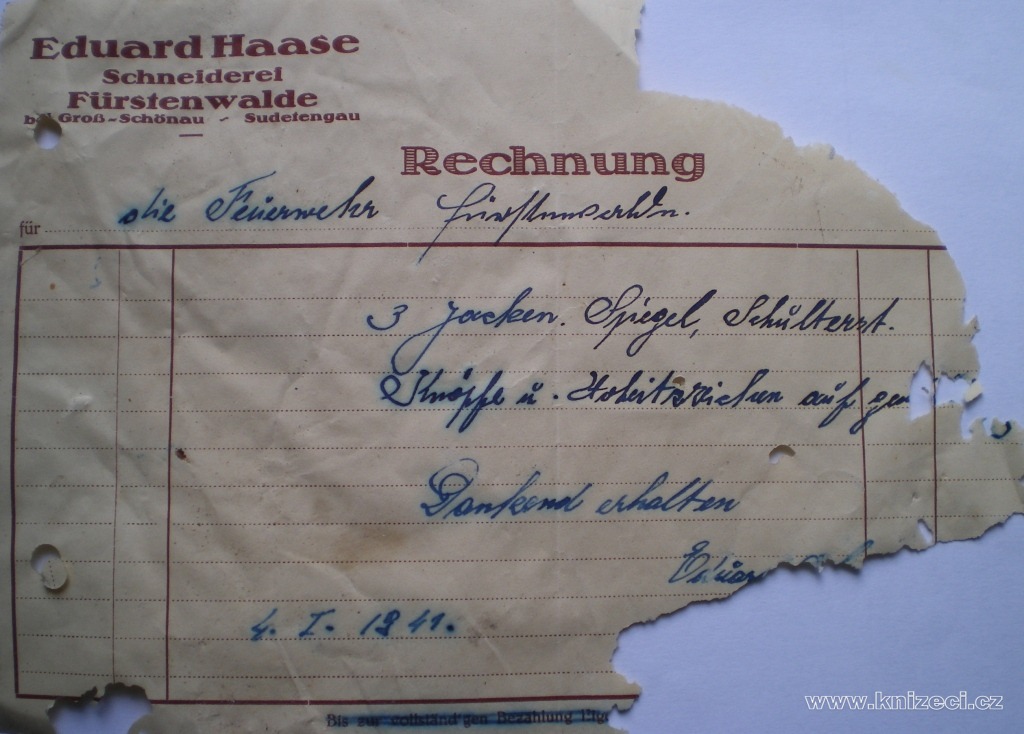 Eduard Haase
Schneiderei
Fürstenwalde
bei Groß-Schönau - Sudetengau
Rechnung
für die Feuerwehr Fürstenwalde.
3 Jacken. Spiegel, Schulterst.
Knöpfe u. Hoheitszeichen auf gen
Dankend erhalten
Eduar
4. I. 1941.
Bis zur vollständigen Bezahlung Eig
www.knizeci.cz